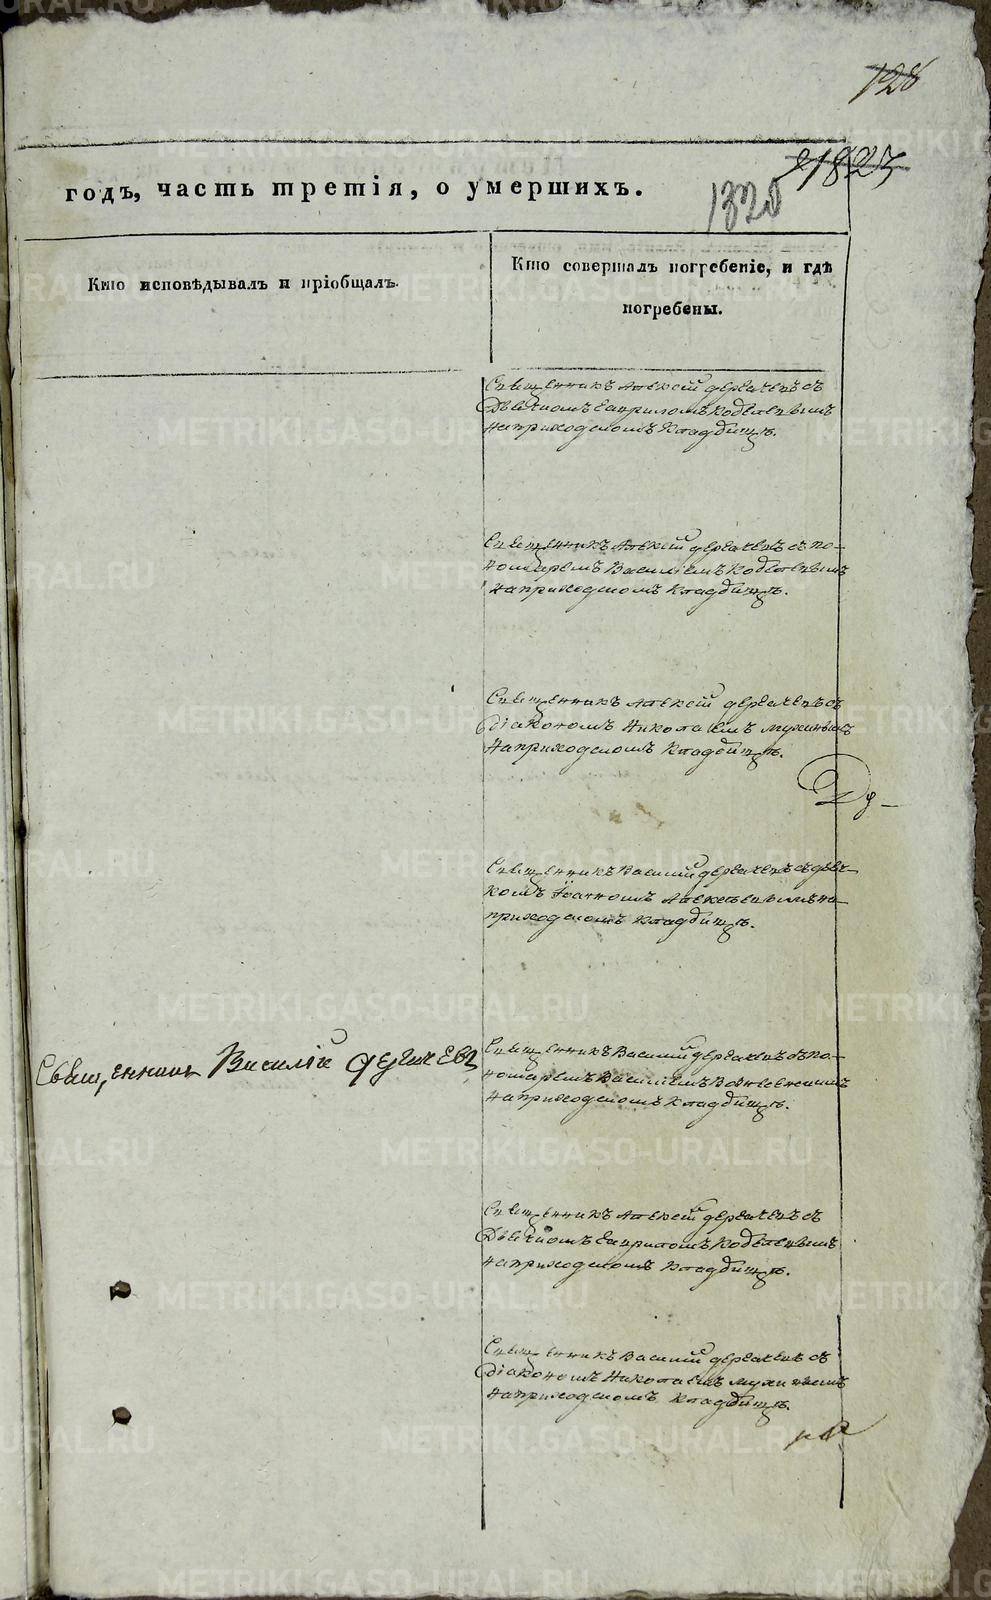 128
21823
1320
годъ, часть третія, о умершихъ.
Кто исповѣдывалъ и пріобщалъ.
Кто совершалъ погребеніе, и гдѣ
погребены.
Священникъ Алексій дергачевъ съ
Дьячкомъ Гавриломъ
на приходскомъ Кладбищѣ.
Священникъ Алексій дергачевъ съ по-
номаремъ Василіемъ
на приходскомъ Кладбищѣ.
Священникъ Алексій дергачевъ съ
діакономъ Николаемъ мухинымъ
на приходскомъ Кладбищѣ.
Священникъ Василій дергачевъ съ дьяч-
комъ Іоанномъ на
приходскомъ Кладбищѣ.
Священникъ Василій дергачевъ
Священникъ Василій дергачевъ съ по-
номаремъ Василіемъ
на приходскомъ Кладбищѣ.
Священникъ Алексій дергачевъ съ
Дьячкомъ Гавриломъ
на приходскомъ Кладбищѣ.
Священникъ Василій дергачевъ съ
діакономъ Николаемъ мухинымъ
на приходскомъ Кладбищѣ.
METRIKI.GASO-URAL.RU